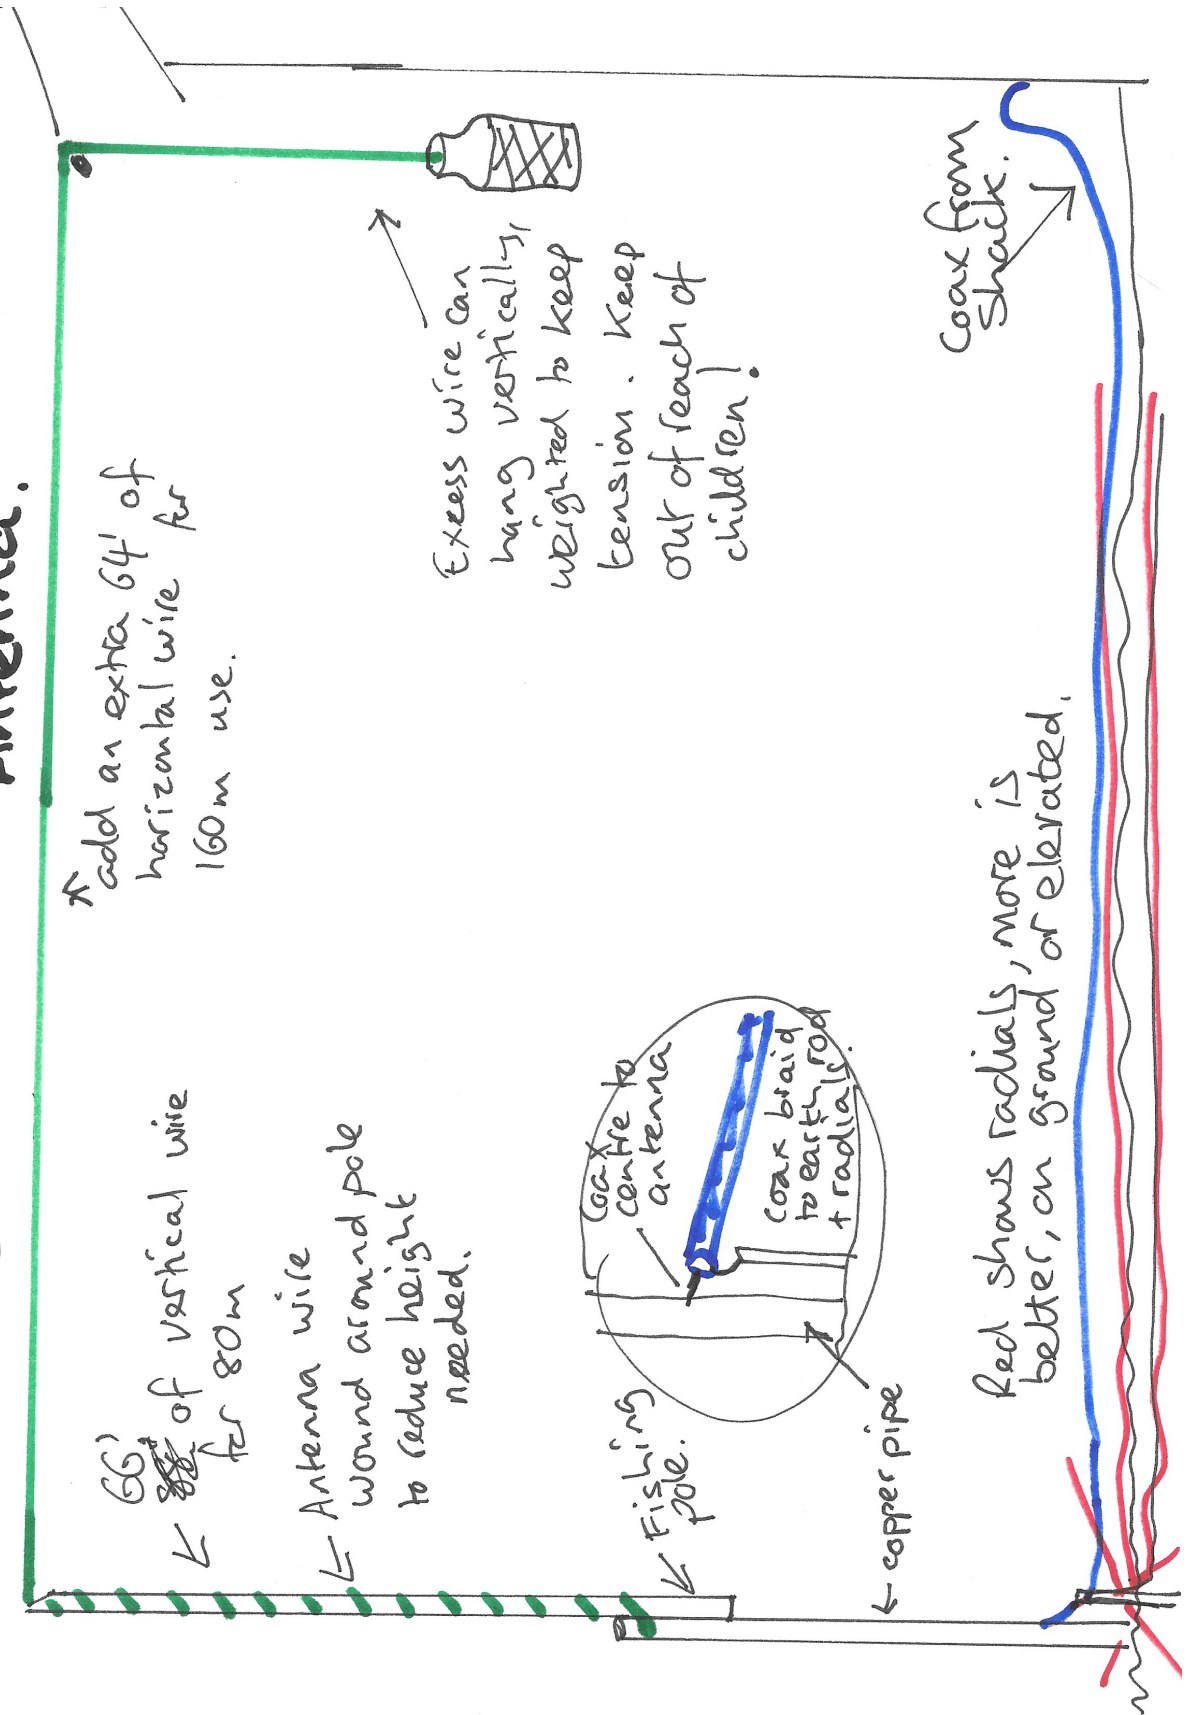 Antenna.
66'
of vertical wire
for 80m
Antenna wire
wound around pole
to reduce height
needed.
add an extra 64' of
horizontal wire for
160m use.
Excess wire can
hang vertically,
weighted to keep
tension. Keep
out of reach of
children!
Fishing
pole.
Coax
centre to
antenna
Coax braid
to earth rod
+ radials.
copper pipe
Red shows radials, more is
better, on ground or elevated.
Coax from
Shack.